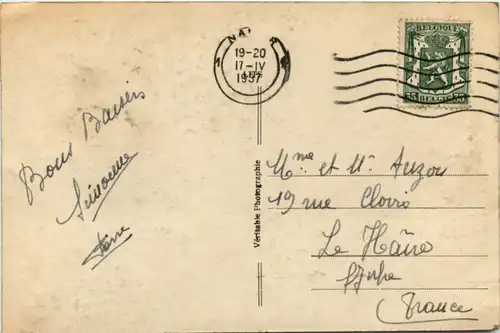 NA
1
19-20
17-IV
1937
BELGIQUE
35 BELGIE 35
Bons Baisers
Simonne
Véritable Photographie
Mme et Mr. Auzou
19 rue Clovis
Le Hâvre
S/Infre
(France)